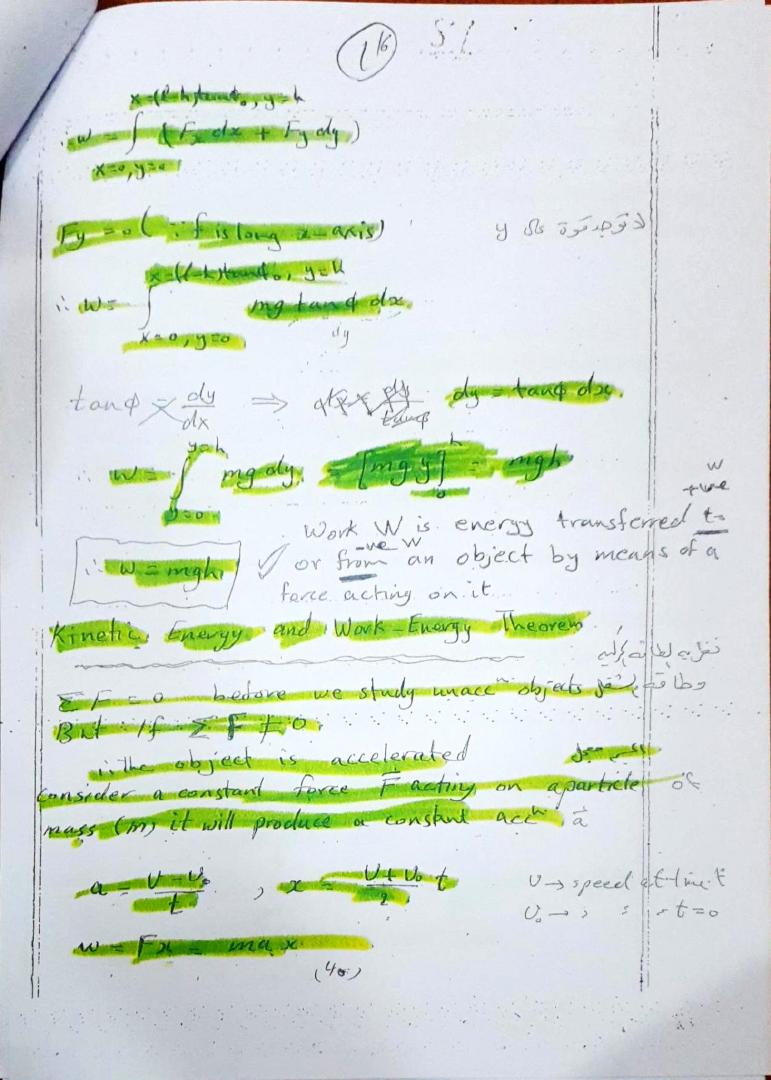 16
1
51
x=(l-h)tanφ₀, y=h
∴ w = ∫ (Fx dx + Fy dy)
x=0, y=0
Fy = 0 (∵ f is long x-axis) لا توجد قوة على y
x=(l-h)tanφ₀, y=h
∴ w = ∫ mg tanφ dx
x=0, y=0
dy
tanφ = dy/dx ⇒ dy = tanφ dx.
y=h
∴ w = ∫ mg dy [mg y]₀ʰ = mgh
y=0
w
+ve
Work W is energy transferred to
-ve w
∴ w = mgh ✓ or from an object by means of a
force acting on it
Kinetic Energy and Work-Energy Theorem
ΣF = 0 before we study unaccⁿ objects
But if ΣF ≠ 0.
∴ the object is accelerated
consider a constant force F⃗ acting on aparticle of
mass (m) it will produce a constant accⁿ a⃗
a = (v - v₀)/t , x = (v + v₀)/2 t v → speed at time t
v₀ → " " " t=0
w = Fx = ma x
(40)